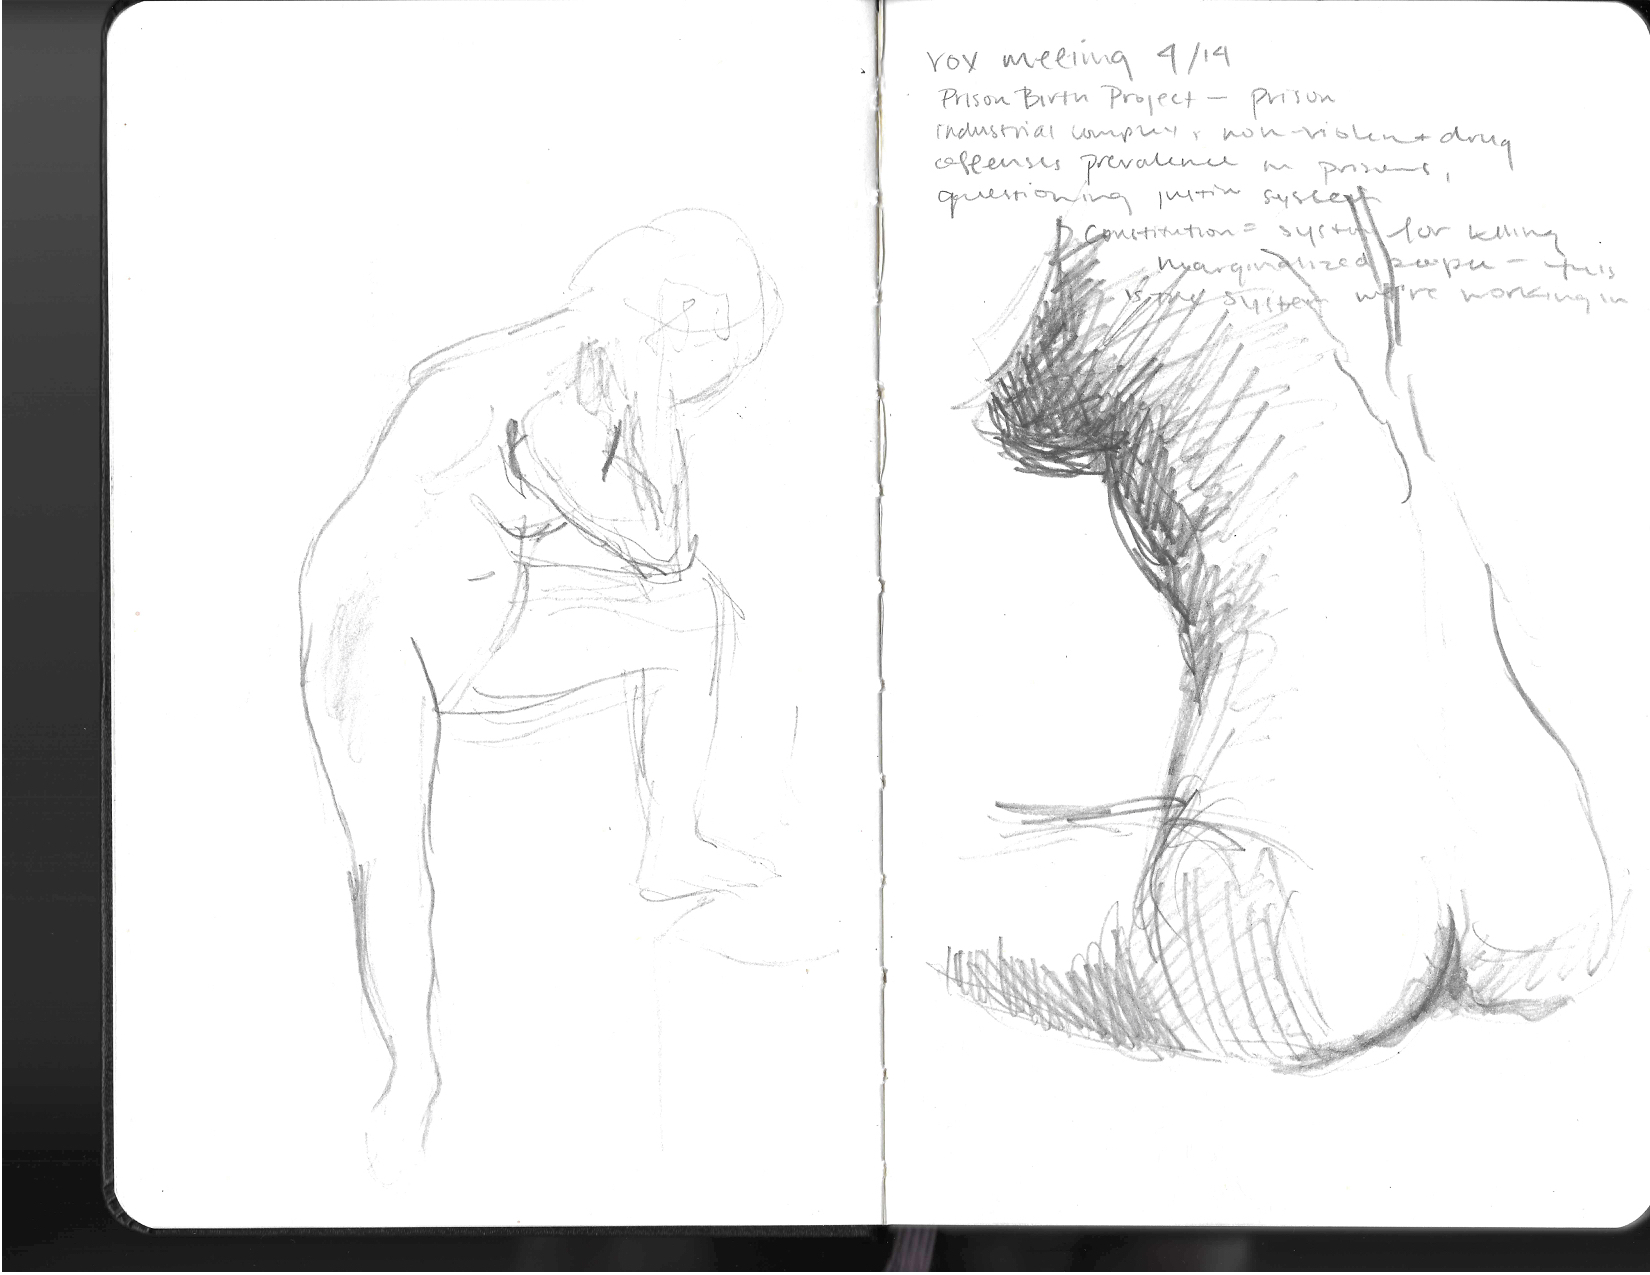 vox meeting 4/14
Prison Birth Project — prison
industrial complex, non-violent drug
offenses prevalence in prisons,
questioning justice system
Constitution = system for killing
marginalized people — this
is the system we're working in